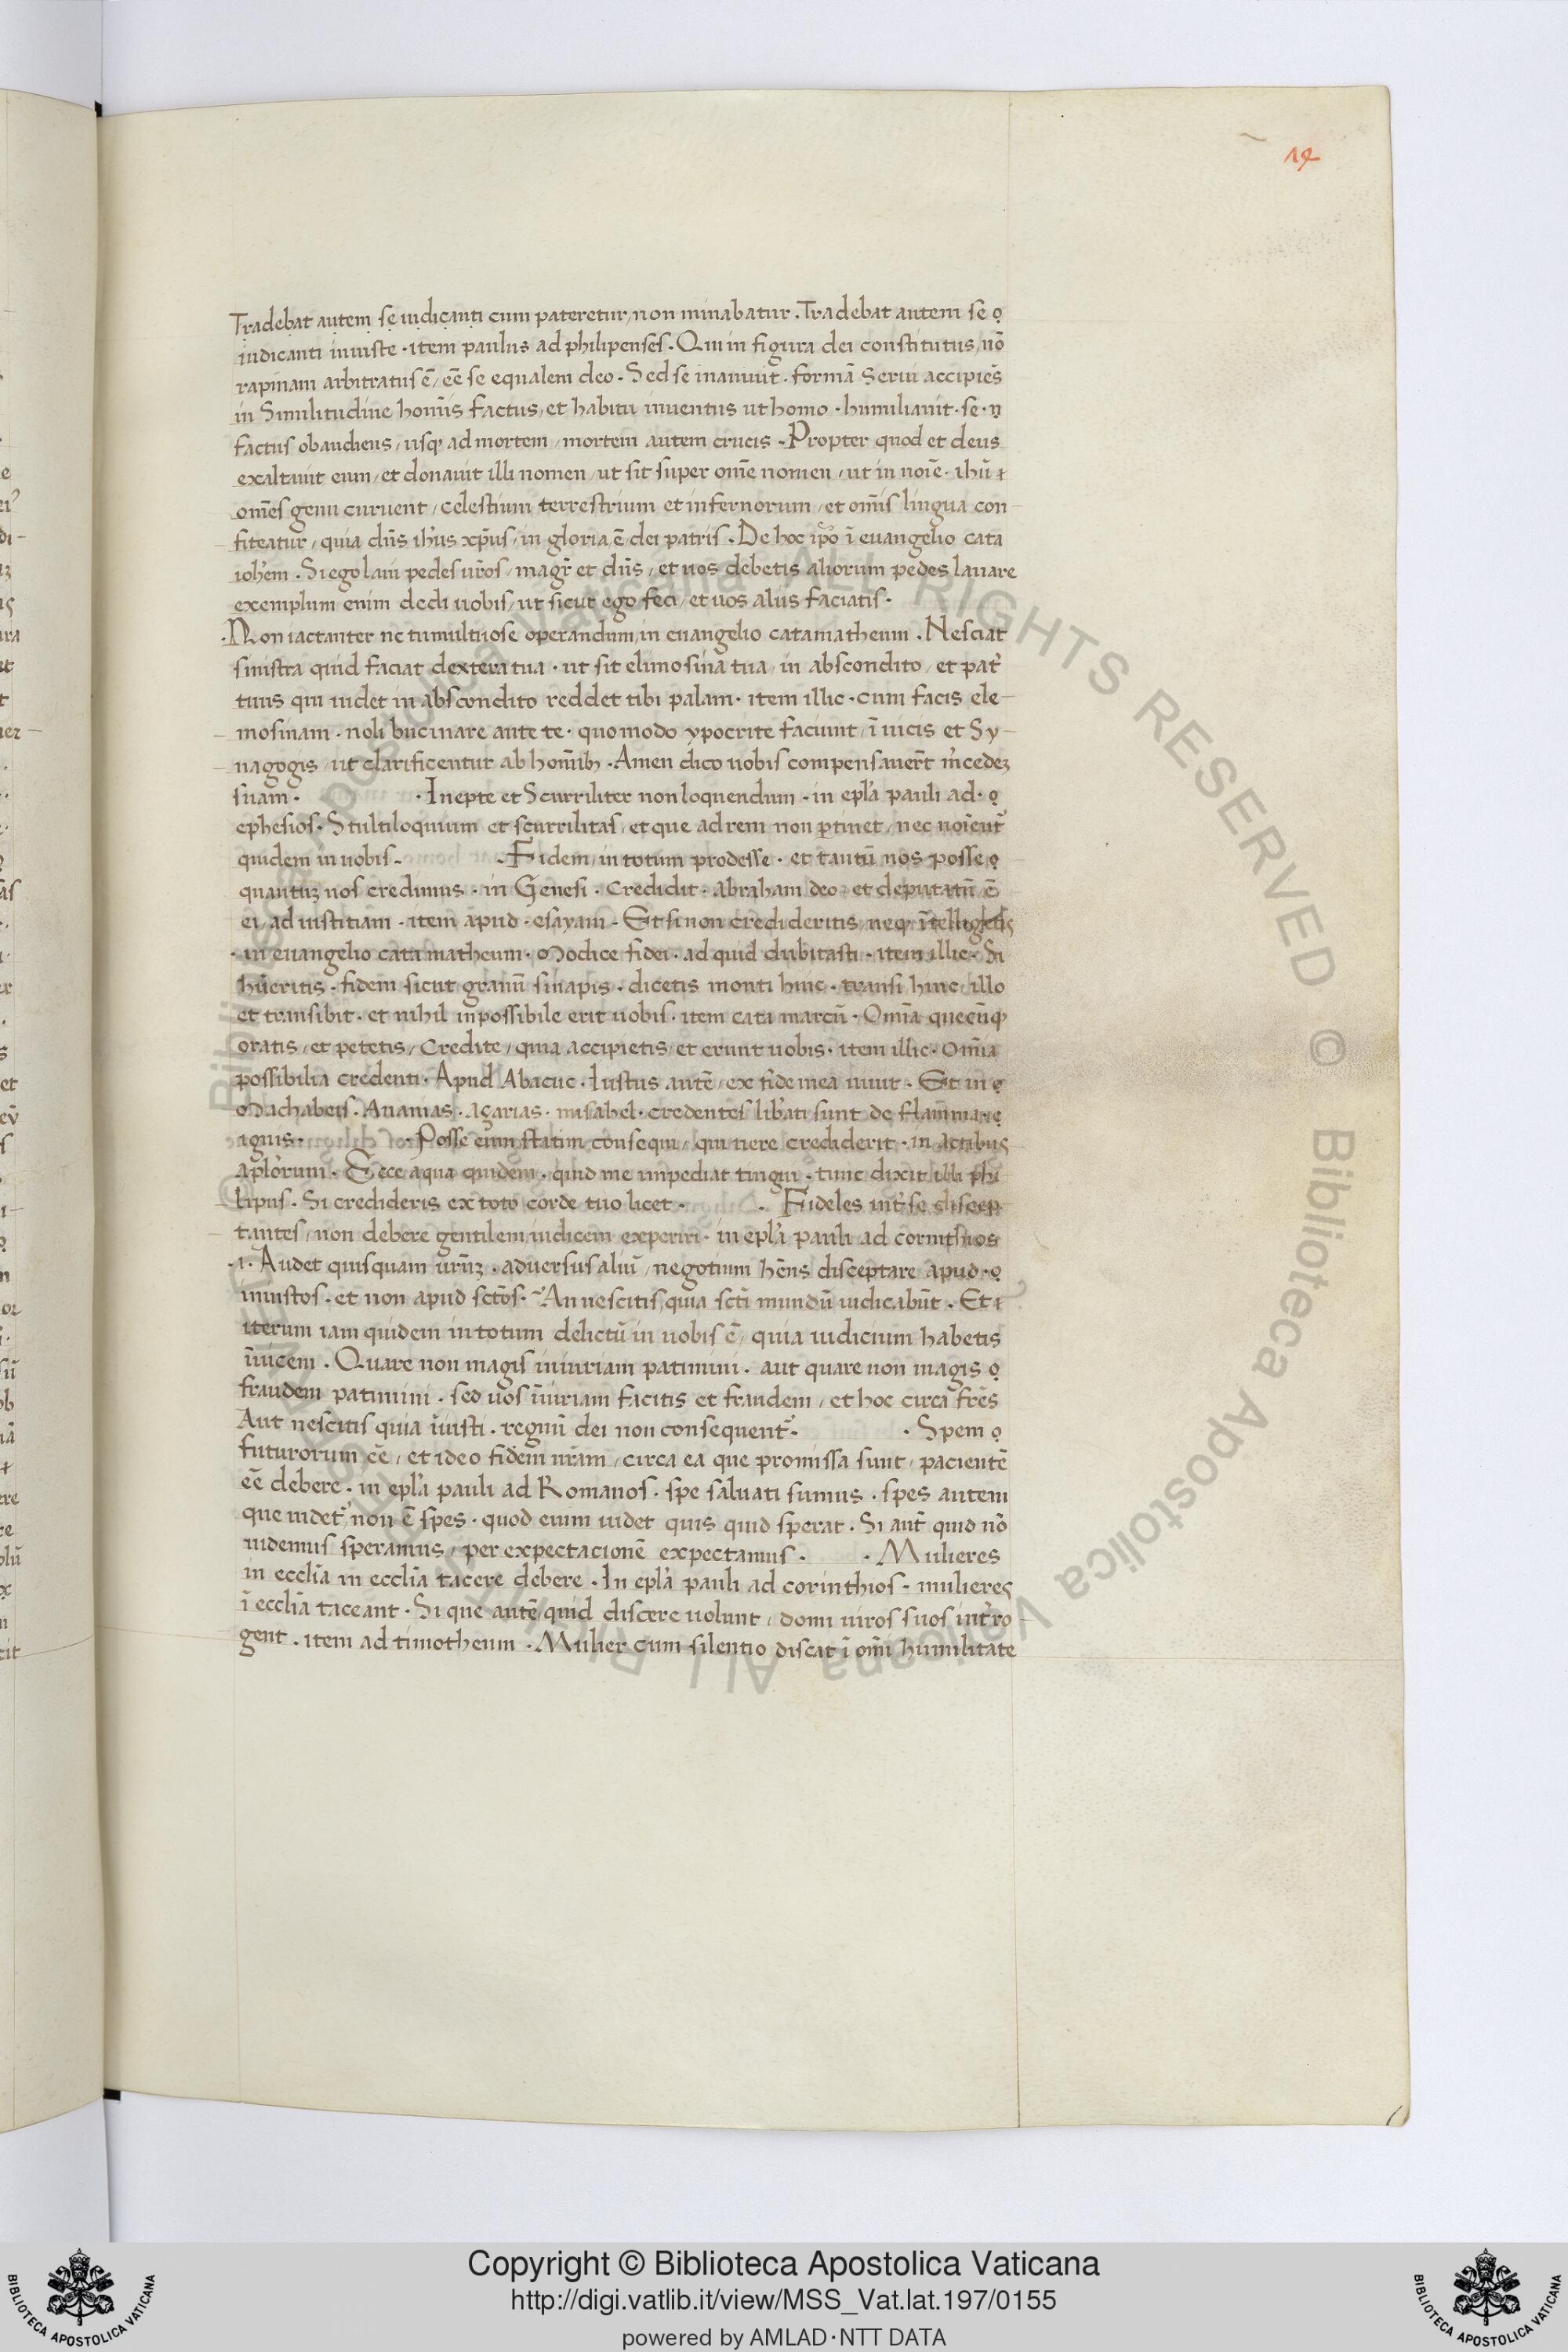 14
Tradebat autem se iudicanti cum pateretur, non minabatur. Tradebat autem se
iudicanti iniuste. item paulus ad philipenses. Qui in figura dei constitutus, nō
rapinam arbitratus ē, eē se equalem deo. Sed se inanivit. formā Servi accipiēs
in Similitudine homīs factus, et habitu inventus ut homo. humiliavit. se.
factus obaudiens, usq; ad mortem, mortem autem crucis. Propter quod et deus
exaltavit eum, et donavit illi nomen, ut sit super omē nomen, ut in noīe. ihū
om̄es genu curvent, celestium terrestrium et infernorum, et om̄is lingua con-
fiteatur, quia dn̄s ihūs xp̄us, in gloria ē, dei patris. De hoc ip̄o ī evangelio cata
ioh̄em. Si ego lavi pedes ur̄os, magr̄ et dn̄s, et uos debetis aliorum pedes lavare
exemplum enim dedi uobis, ut sicut ego feci, et uos aliis faciatis.
.Non iactanter nc tumultuose operandum, in euangelio catamatheum. Nesciat
sinistra quid faciat dextera tua. ut sit elimosina tua, in abscondito, et pat̄
tuus qui uidet in abscondito reddet tibi palam. item illic. cum facis ele-
mosinam. noli bucinare ante te. quomodo ypocrite faciunt, ī uicis et Sy-
nagogis, ut clarificentur ab homīb;. Amen dico uobis compensauer̄t m̄cedez
suam. .Inepte et Scurriliter non loquendum. in epl̄a pauli ad.
ephesios. Stultiloquium et scurrilitas, et que ad rem non p̄tinet, nec noīent̄
quidem in uobis. .Fidem, in totum prodesse. et tantū nos posse
quantuz nos credimus. in Genesi. Credidit. abraham deo, et deputatū ē
ei, ad iustitiam. item apud. esayam. Et si non credideritis, neq; ītelligetis
. in euangelio cata matheum. Modice fidei. ad quid dubitasti. item illic. Si
hūeritis. fidem sicut granū sinapis. dicetis monti huic. transi hinc, illo
et transibit. et nihil inpossibile erit uobis. item cata marcū. Omīa quecūq;
oratis, et petetis, Credite, quia accipietis, et erunt uobis. item illic. omīa
possibilia credenti. Apud Abacuc. Iustus autē, ex fide mea uiuit. Et in
Machabeis. Ananias. açarias. misahel. credentes lib̄ati sunt de flamma
ignis. .Posse eum statim consequi, qui uere crediderit. in actibus
apl̄orum. Ecce aqua quidem. quid me impediat tingui. tunc dixit illi phi
lipus. Si credideris ex toto corde tuo licet. . Fideles int̄ se discep
tantes, non debere gentilem iudicem experiri. in epl̄a pauli ad corinthios
.i. Audet quisquam ur̄uz. aduersus aliū, negotium hēns disceptare apud.
iniustos. et non apud sctōs. An nescitis, quia sctī mundū iudicabūt. Et
iterum iam quidem in totum delictū in uobis ē, quia iudicium habetis
īuicem. Quare non magis iniuriam patimini. aut quare non magis
fraudem patimini. sed uos īiuriam facitis et fraudem, et hoc circa fr̄es
Aut nescitis quia īiusti. regnū dei non consequent̄. .Spem
futurorum eē, et ideo fidem nr̄am, circa ea que promissa sunt, pacientē
eē debere. in epl̄a pauli ad Romanos. spe saluati sumus. spes autem
que uidet̄, non ē spes. quod enim uidet quis quid sperat. Si aut̄ quid nō
uidemus speramus, per expectacionē expectamus. .Mulieres
in eccl̄ia in eccl̄ia tacere debere. In epl̄a pauli ad corinthios. mulieres
ī eccl̄ia taceant. Si que autē, quid discere uolunt, domi uiros suos int̄ro-
gent. item ad timotheum. Mulier cum silentio discat ī omī humilitate
Copyright © Biblioteca Apostolica Vaticana
http://digi.vatlib.it/view/MSS_Vat.lat.197/0155
powered by AMLAD·NTT DATA